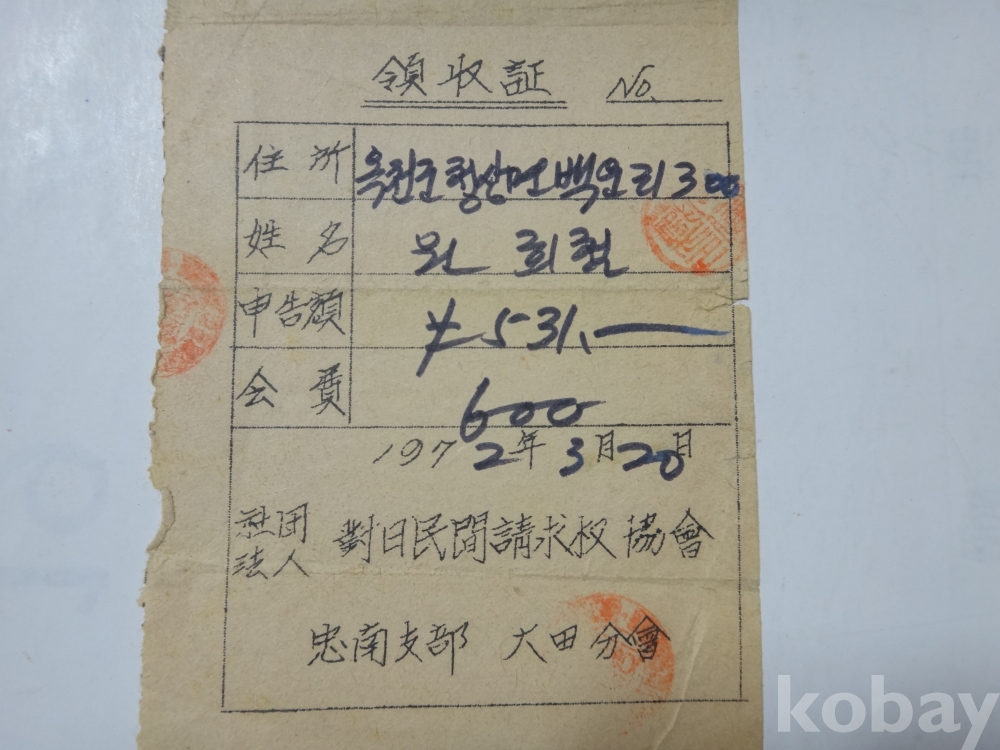 領収証 No.
住所 옥천군 청산면 백운리 300
姓名 원 회철
申告額 ￥531.—
会費 600
1972年 3月 20日
社団法人 對日民間請求权協會
忠南支部 大田分會
kobay